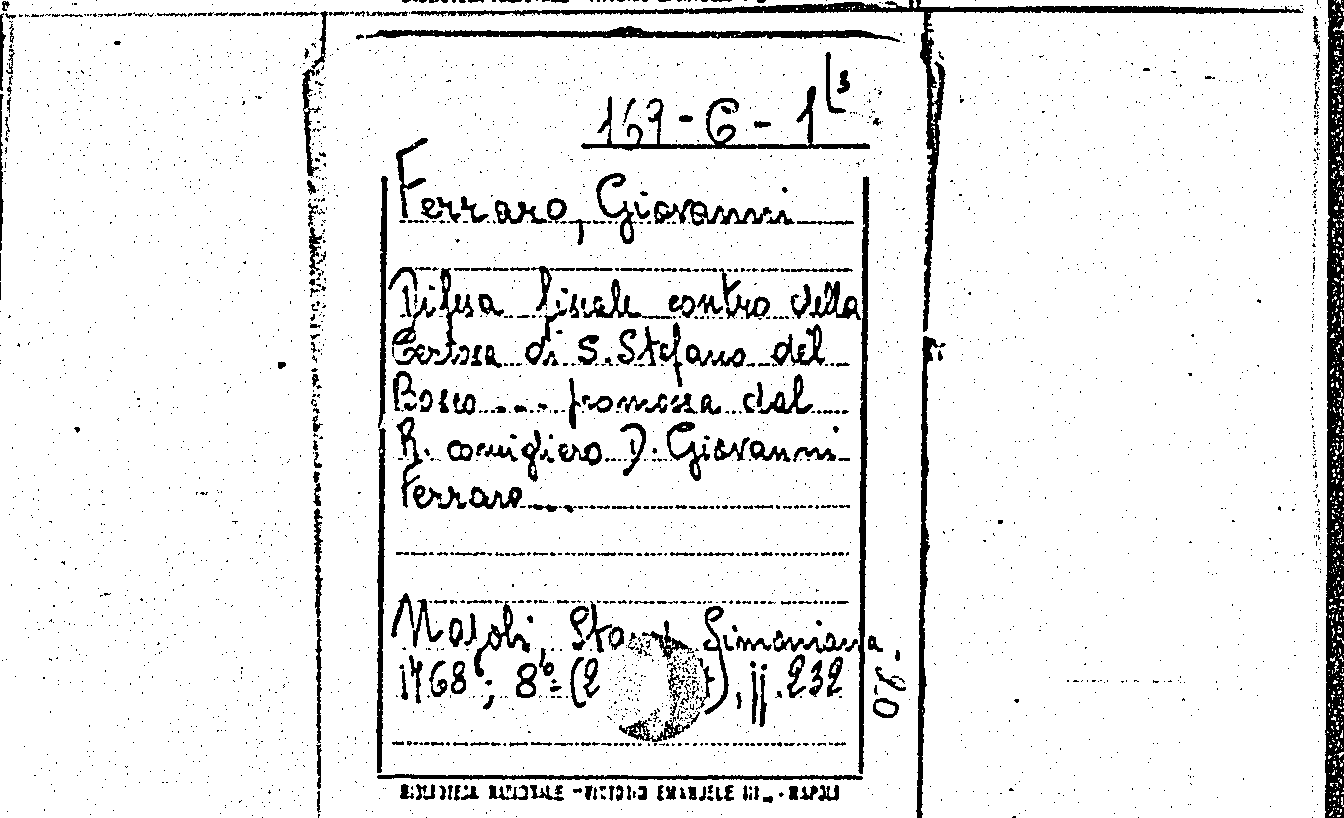 167-6-1 Ls
Ferraro, Giovanni
Difesa fiscale contro della
Certosa di S. Stefano del
Bosco... promossa dal
R. consigliero D. Giovanni
Ferraro...
Napoli, Simoniana,
1768; 8º=(2 ), pp. 232
BIBLIOTECA NAZIONALE - VITTORIO EMANUELE III - NAPOLI